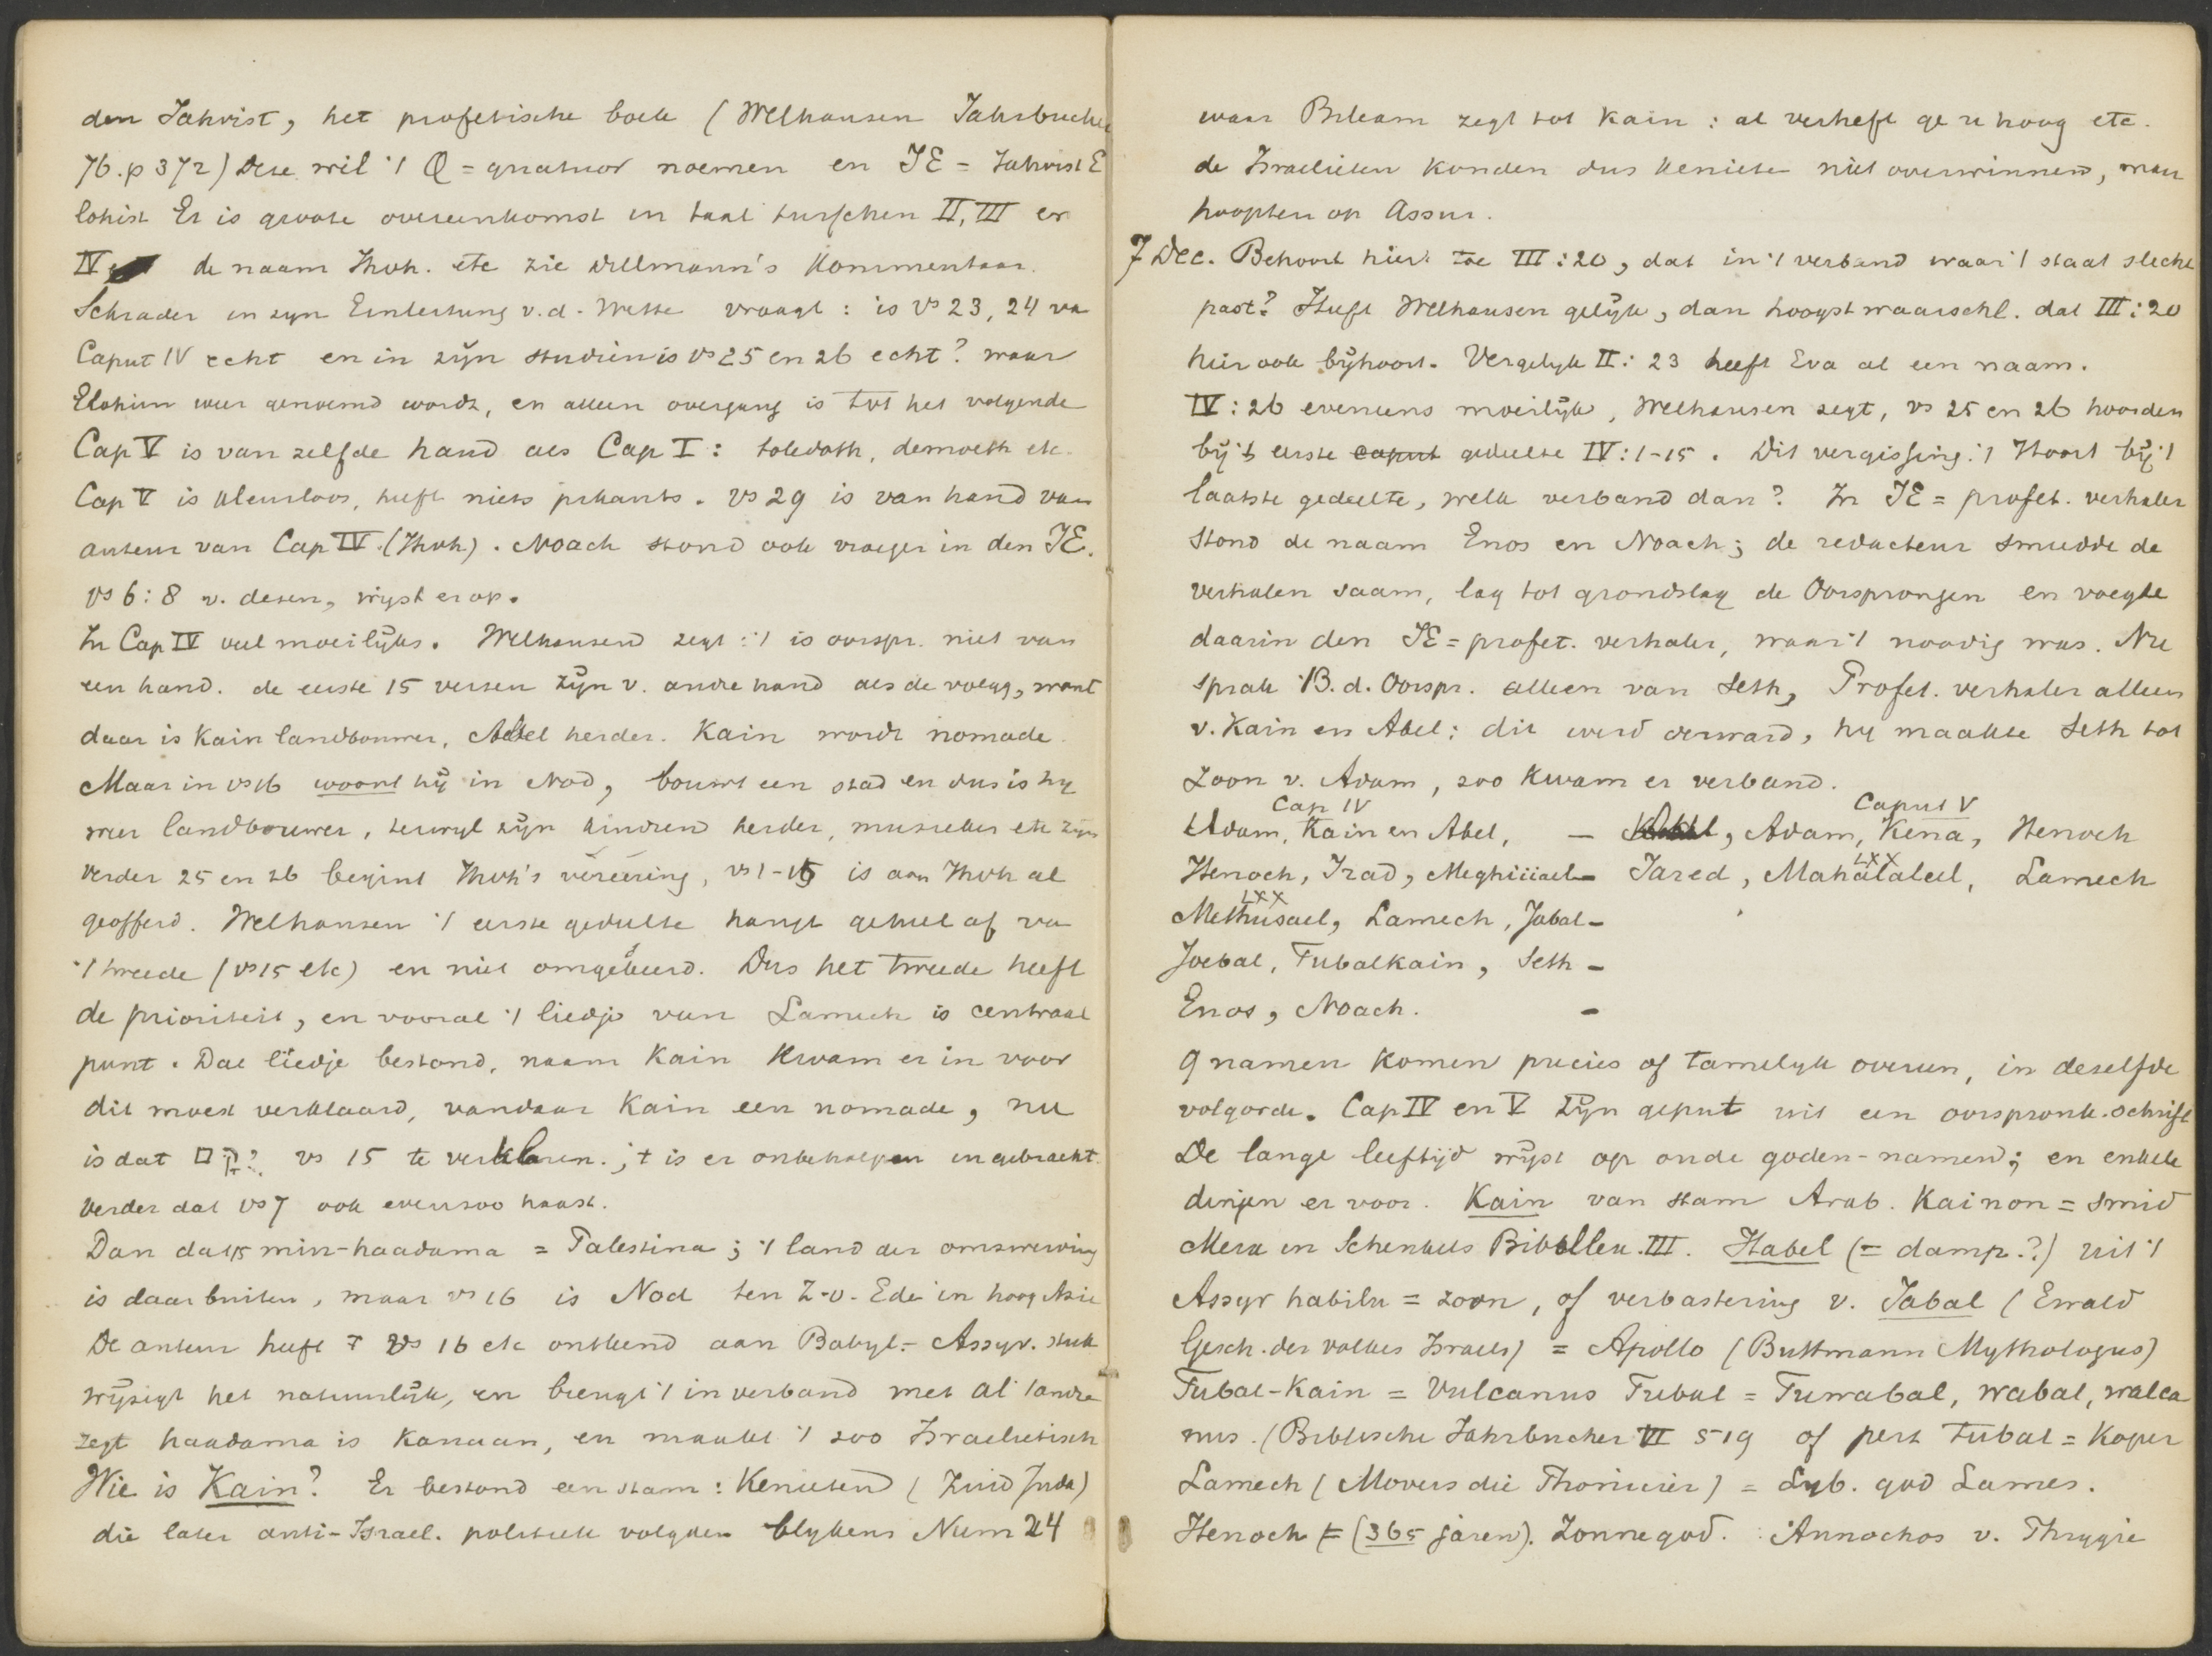 den Jahvist, het profetische boek (Welhausen Jahrbucher
76. p 372) Deze wil 't Q = quatuor noemen en JE = Jahvist E
lohist Er is groote overeenkomst in taal tusschen II, III en
IV de naam Jhvh. etc zie Dillmann's Kommentaar.
Schrader in zyn Einleitung v.d. Wette vraagt : is vs 23, 24 va
Caput IV echt en in zijn studiën is vs 25 en 26 echt? waar
Elohim weer genoemd wordt, en alleen overgang is tot het volgende
Cap V is van zelfde hand als Cap I : toledoth, demoeth etc.
Cap V is kleurloos, heeft niets pikants. vs 29 is van hand van
auteur van Cap IV. (Jhvh). Noach stond ook vroeger in den JE.
vs 6 : 8 v. dezen, wyst er op.
In Cap IV veel moeilijks. Welhausen zegt : 't is oorspr. niet van
een hand. de eerste 15 verzen zijn v. andre hand als de volgg, want
daar is Kain landbouwer, Abel herder. Kain wordt nomade.
Maar in vs 16 woont hij in Nod, bouwt een stad en dus is hy
weer landbouwer, terwyl zijn kindren herder, muzieker etc zijn
Verder 25 en 26 begint Jhvh's vereering, vs 1-15 is aan Jhvh al
geofferd. Welhausen 't eerste gedeelte hangt geheel af va
't tweede (vs 15 etc) en niet omgekeerd. Dus het tweede heeft
de prioriteit, en vooral 't liedje van Lamech is centraal
punt. Dat liedje bestond, naam Kain kwam er in voor
dit moest verklaard, vandaar Kain een nomade, nu
is dat vs 15 te verklaren. ; t is er onbeholpen ingebracht.
Verder dat vs 7 ook evenzoo haast.
Dan dat min-haadama = Palestina ; 't land der omzwerving
is daarbuiten, maar vs 16 is Nod ten Z-O. Ede in hoog Azie
De auteur heeft vs 16 etc ontleend aan Babyl.- Assyr. stuk
wijzigt het natuurlijk, en brengt 't in verband met al 't andre
zegt haadama is Kanaan, en maakt 't zoo Israelietisch
Wie is Kain? Er bestond een stam : Kenieten (Zuid Juda)
die later anti-Israel. politiek volgden blykens Num 24
waar Bileam zegt tot Kain : al verheft ge u hoog etc.
de Israelieten konden dus Kenieten niet overwinnen, maar
hoopten op Assur.
7 Dec. Behoort hier toe III : 20, dat in 't verband waar 't staat slecht
past? Heeft Welhausen gelijk, dan hoogst waarschl. dat III : 20
hier ook bijhoort. Vergelyk II : 23 heeft Eva al een naam.
IV : 26 eveneens moeilijk, Welhausen zegt, vs 25 en 26 hoorden
bij 't eerste caput gedeelte IV : 1-15. Dit vergissing. 't Hoort bij 't
laatste gedeelte, welk verband dan? In JE = profet. verhaler
stond de naam Enos en Noach ; de redacteur smeedde de
verhalen saam, lag tot grondslag de Oorsprongen en voegde
daarin den JE = profet. verhaler, waar 't noodig was. Nu
sprak B. d. Oorspr. alleen van Seth, Profet. verhaler alleen
v. Kain en Abel : dit werd verward, hy maakte Seth tot
zoon v. Adam, zoo kwam er verband.
Cap IV Caput V
Adam, Kain en Abel, — Adam, Kena, Henoch
Henoch, Irad, Meghiiiael — Jared, Mahalaleel, Lamech
LXX LXX
Methusael, Lamech, Jabal —
Joebal, Tubalkain, Seth —
Enos, Noach. —
9 namen komen precies of tamelyk overeen, in dezelfde
volgorde. Cap IV en V zijn geput uit een oorspronk. schrift
De lange leeftijd wijst op oude goden-namen ; en enkele
dingen er voor. Kain van stam Arab. Kainon = smid
Merx in Schenkels Bibellex. III. Habel (= damp.?) uit 't
Assyr habilu = zoon, of verbastering v. Jabal (Ewald
Gesch. des volkes Israels) = Apollo (Buttmann Mythologus)
Tubal-Kain = Vulcanus Tubal = Tuwabal, wabal, walca
nus. (Biblische Jahrbucher VII 519 of perz tubal = koper
Lamech (Movers die Phonicier) = Lyb. god Lames.
Henoch = (365 jaren). Zonnegod. Annochos v. Phrygie